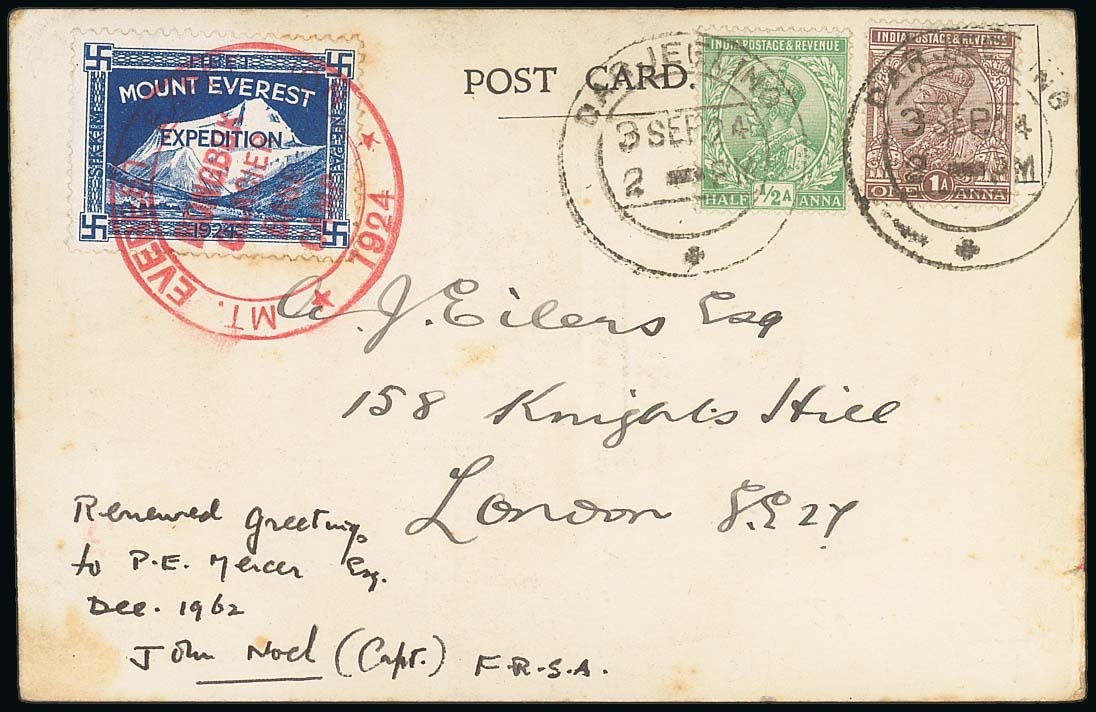 TIBET
MOUNT EVEREST
EXPEDITION
1924
SIKKIM
NEPAL
MT. EVEREST 1924
POST CARD.
DARJEELING
3 SEP 24
2 PM
INDIA POSTAGE & REVENUE
HALF 1/2A ANNA
DARJEELING
3 SEP 24
2 PM
INDIA POSTAGE & REVENUE
ONE 1A ANNA
A. J. Eilers Esq
158 Knights Hill
London S.E 27
Renewed greetings
to P.E. Mercer Esq.
Dec. 1962
John Noel (Capt.) F.R.S.A.